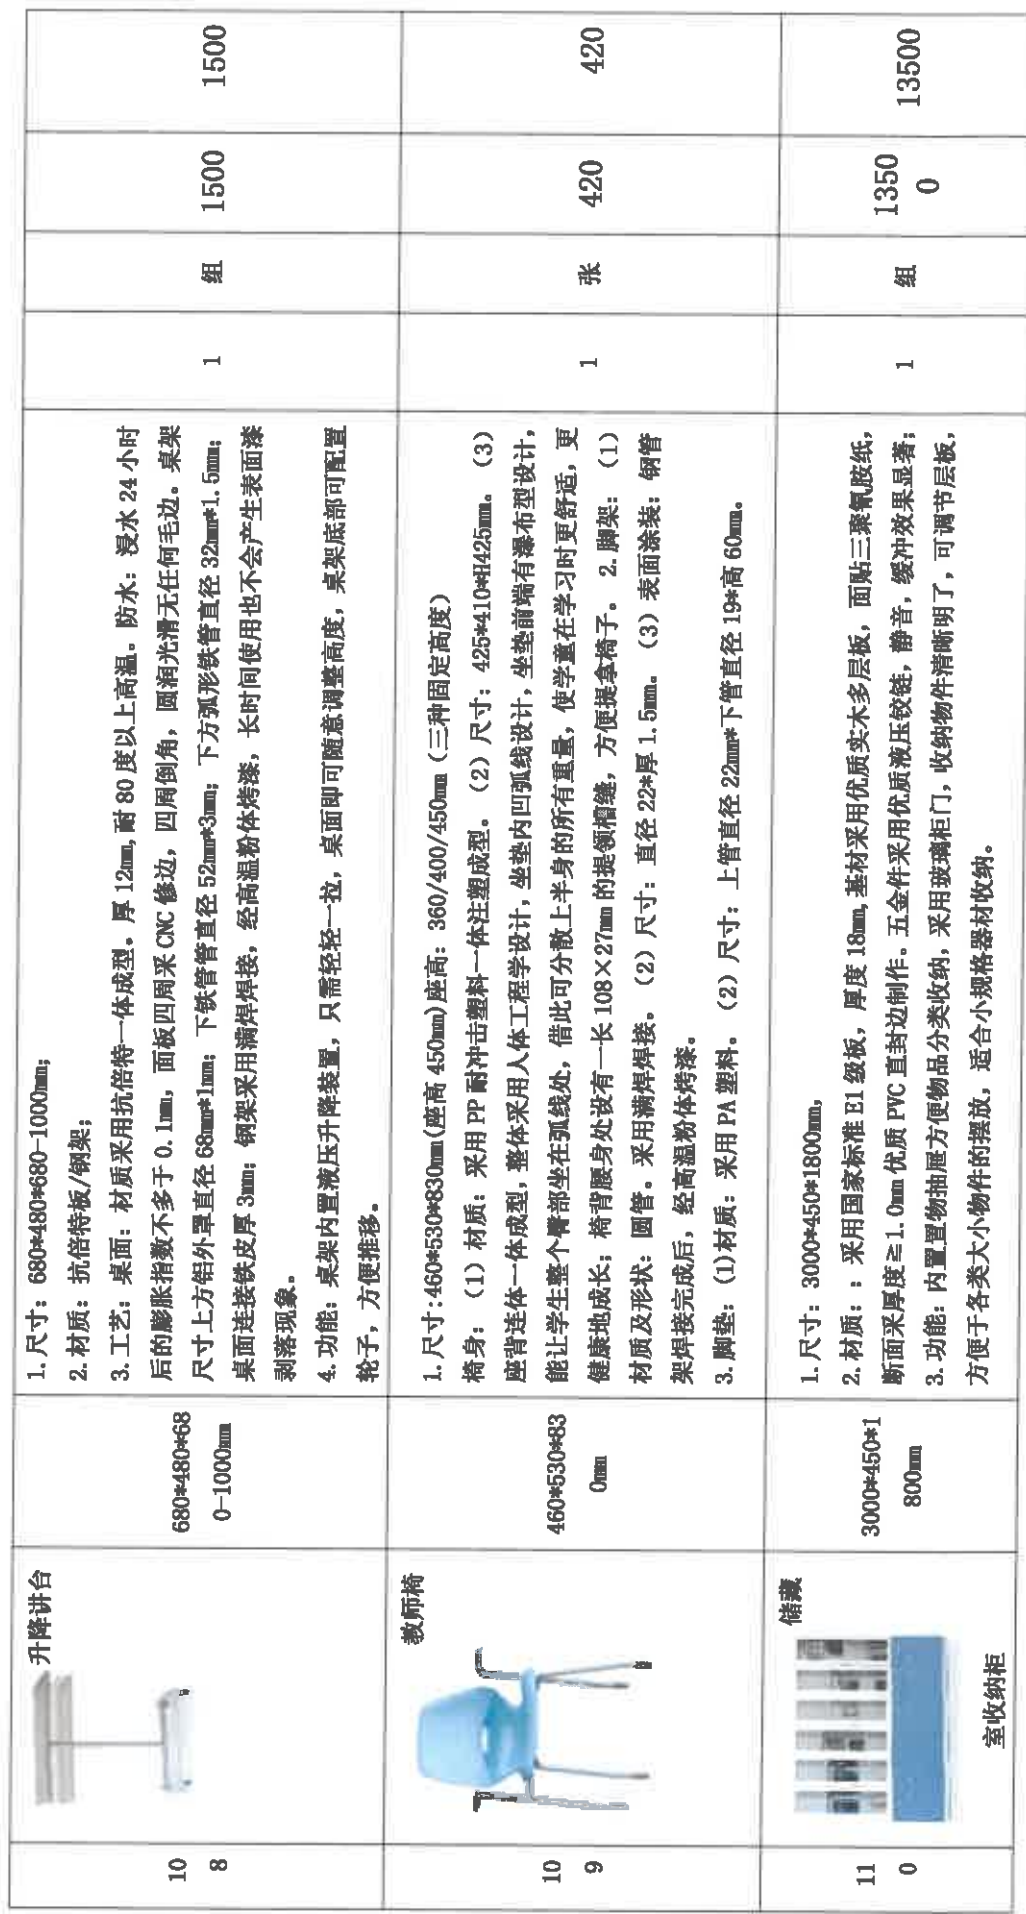 10
8
升降讲台
680*480*68
0-1000mm
1.尺寸：680*480*680-1000mm；
2.材质：抗倍特板/钢架；
3.工艺：桌面：材质采用抗倍特一体成型。厚 12mm,耐 80 度以上高温。防水：浸水 24 小时
后的膨胀指数不多于 0.1mm，面板四周采 CNC 修边，四周倒角，圆润光滑无任何毛边。桌架
尺寸上方铝外罩直径 68mm*1mm；下铁管管直径 52mm*3mm；下方弧形铁管直径 32mm*1.5mm；
桌面连接铁皮厚 3mm；钢架采用满焊焊接，经高温粉体烤漆，长时间使用也不会产生表面漆
剥落现象。
4.功能：桌架内置液压升降装置，只需轻轻一拉，桌面即可随意调整高度，桌架底部可配置
轮子，方便推移。
1
组
1500
1500
10
9
教师椅
460*530*83
0mm
1.尺寸:460*530*830mm(座高 450mm)座高：360/400/450mm（三种固定高度）
椅身：（1）材质：采用 PP 耐冲击塑料一体注塑成型。（2）尺寸：425*410*H425mm。（3）
座背连体一体成型，整体采用人体工程学设计，坐垫内凹弧线设计，坐垫前端有瀑布型设计，
能让学生整个臀部坐在弧线处，借此可分散上半身的所有重量，使学童在学习时更舒适，更
健康地成长；椅背腰身处设有一长 108×27mm 的提领槽缝，方便提拿椅子。2.脚架：（1）
材质及形状：圆管。采用满焊焊接。（2）尺寸：直径 22*厚 1.5mm。（3）表面涂装：钢管
架焊接完成后，经高温粉体烤漆。
3.脚垫：(1)材质：采用 PA 塑料。（2）尺寸：上管直径 22mm*下管直径 19*高 60mm。
1
张
420
420
11
0
储藏
室收纳柜
3000*450*1
800mm
1.尺寸：3000*450*1800mm,
2.材质：：采用国家标准 E1 级板，厚度 18mm,基材采用优质实木多层板，面贴三聚氰胺纸，
断面采厚度≧1.0mm 优质 PVC 直封边制作。五金件采用优质液压铰链，静音，缓冲效果显著；
3.功能：内置置物抽屉方便物品分类收纳，采用玻璃柜门，收纳物件清晰明了，可调节层板，
方便于各类大小物件的摆放，适合小规格器材收纳。
1
组
1350
0
13500